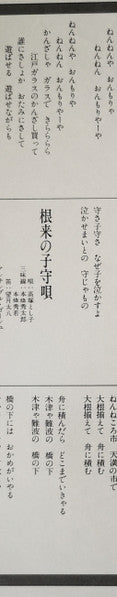 ねんねんや おんもりやー
ねんねん おんもりやーや
ねんねんや おんもりや
ねんねん おんもりやーや
かんざしゃ ガラスで きらららら
江戸ガラスのかんざし買って
誰にさしょか おたみにさして
遊ばせる 遊ばせながらも
守さ子守さ なぜ子を泣かすよ
泣かせまいとの 守じゃもの
根来の子守唄
唄・高塚とし子
三味線・本條秀太郎
本條秀若
笛・望月太八
ねんねころ市 天満の市で
大根揃えて 舟に積む
大根揃えて 舟に積む
舟に積んだら どこまでいきゃる
木津や難波の 橋の下
木津や難波の 橋の下
橋の下には おかめがいやる